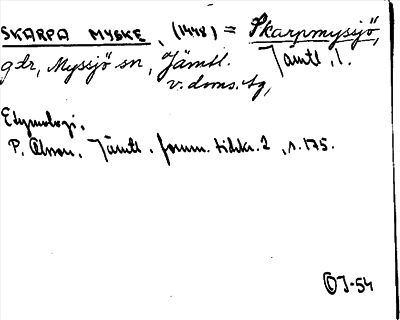 SKARPA MYSKE, (1448) = Skarpmyssjö,
gdr, Myssjö sn, Jämtl. Jämtl. l.
v. doms. tg,
Etymologi.
P. Olsson, Jämtl. fornm. tidskr. 2, s. 175.
OJ-54